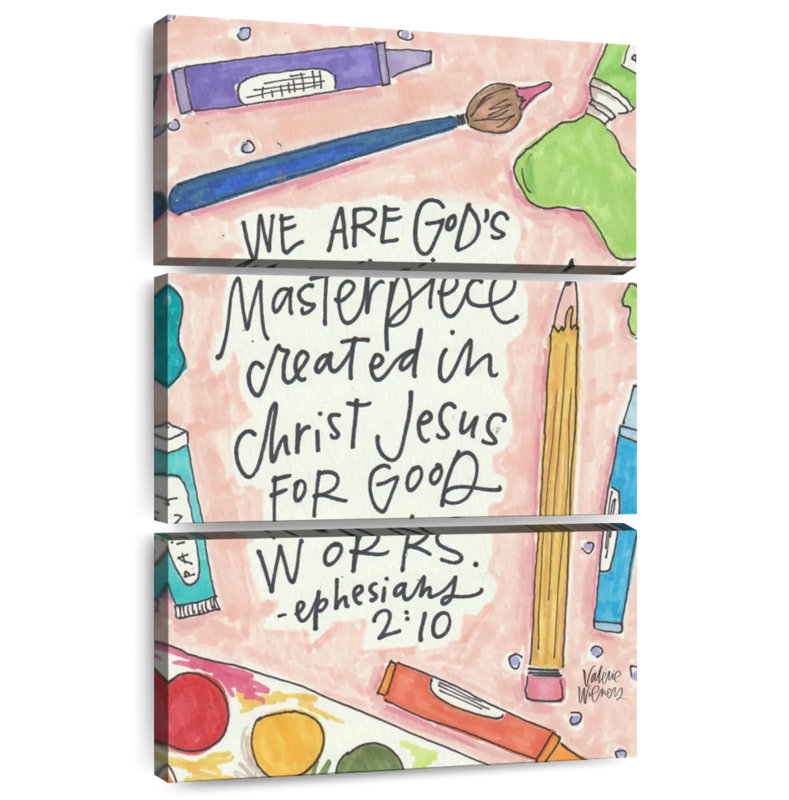 WE ARE GOD'S
Masterpiece
created in
Christ Jesus
FOR GOOD
WORKS.
-ephesians
2:10
PAINT
Valerie
Wieners